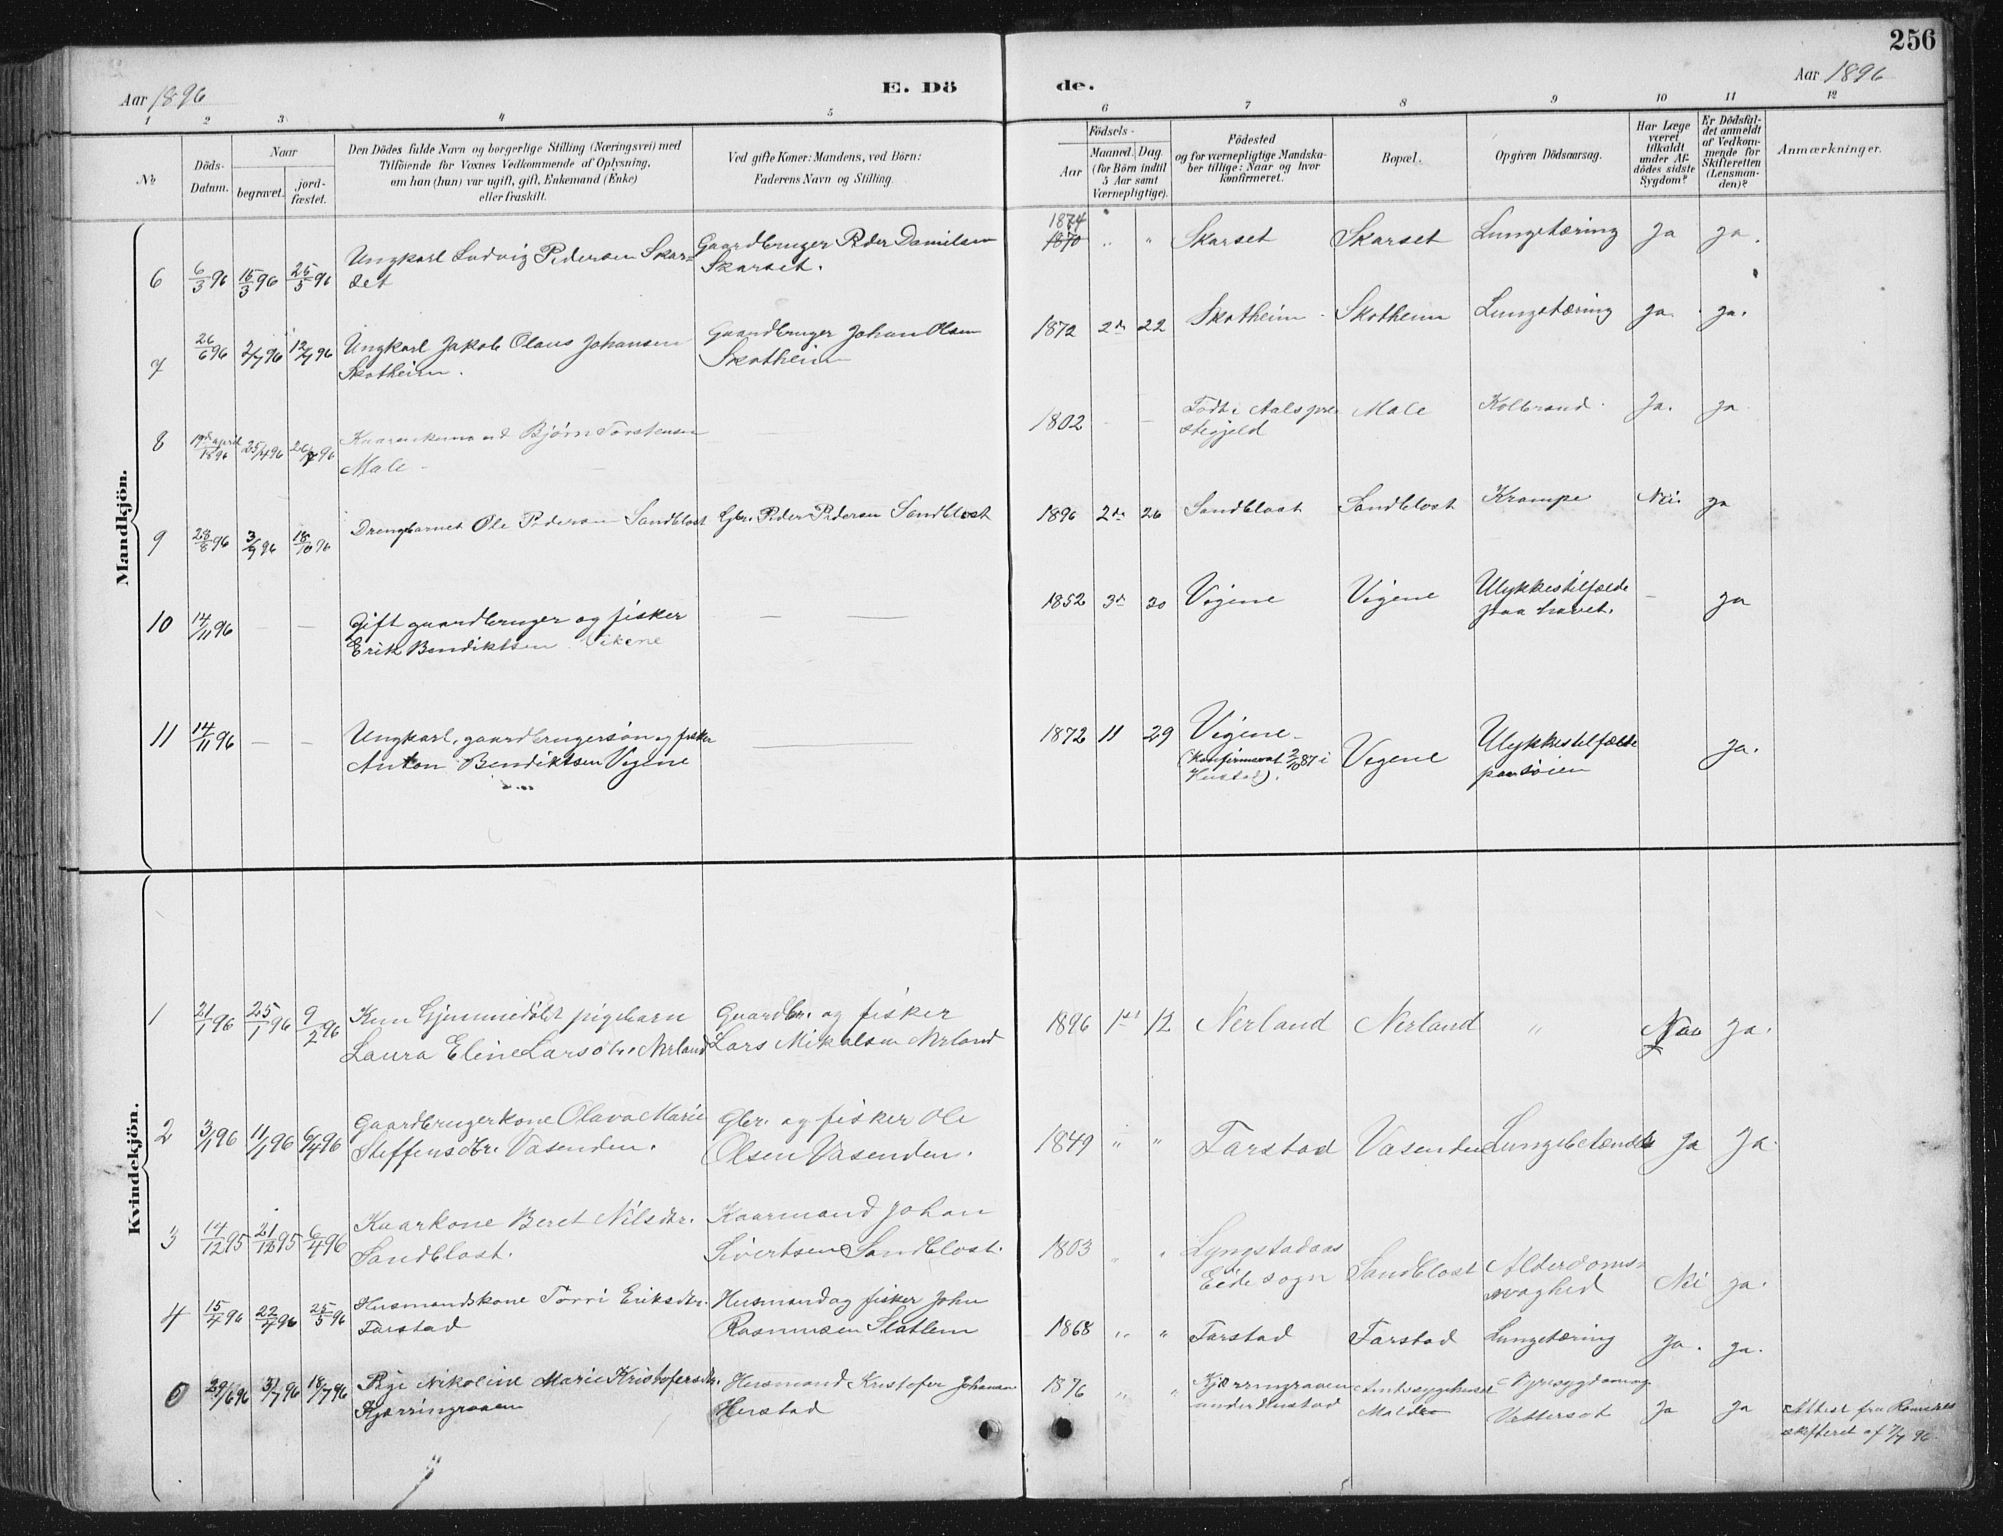 256
Aar 1896
E. Dö
de.
Aar 1896
1 2 3 4 5 6 7 8 9 10 11 12
No
Döds-
Datum.
Naar
begravet.
jord-
fæstet.
Den Dödes fulde Navn og borgerlige Stilling (Næringsvei) med
Tilföiende for Voxnes Vedkommende af Oplysning,
om han (hun) var ugift, gift, Enkemand (Enke)
eller fraskilt.
Ved gifte Koner: Mandens, ved Börn:
Faderens Navn og Stilling.
Födsels-
Aar
Maaned. Dag
(for Börn indtil
5 Aar samt
Værnepligtige).
Födested
og for værnepligtige Mandska-
ber tillige: Naar og hvor
konfirmeret.
Bopæl.
Opgiven Dödsaarsag.
Har Læge
været
tilkaldt
under Af-
dödes sidste
Sygdom?
Er Dödsfal-
det anmeldt
af Vedkom-
mende for
Skifteretten
(Lensman-
den)?
Anmærkninger.
Mandkjön.
6 6/3 96 15/3 96 25/5 96 Ungkarl Ludvig Pedersen Skar= Gaardbruger Peder Danielsen 1874 " " Skarset Skarset Lungetæring Ja ja.
set Skarset. 1870
7 26/6 96 2/7 96 12/7 96 Ungkarl Jakob Olaus Johansen Gaardbruger Johan Olsen 1872 2de 22 Skotheim Skotheim Lungetæring ja. ja.
Skotheim. Skotheim
8 19de april 1896 25/4 96 26/7 96 Bjørn Torstensen — 1802 - - Født i Aals præ Male Koldbrand. Ja. ja
Male - stegjeld
9 28/8 96 3/9 96 18/10 96 Drengbarnet Ole Pedersen Sandblost Gbr. Peder Pedersen Sandblost 1896 2de 26 Sandblost Sandblost Krampe Nei. ja
10 14/11 96 — — Gift gaardbruger og fisker — — 1852 3de 20 Vigene Vigene Ulykkestilfælde — ja
Erik Bendiktsen Vikene paa havet.
11 14/11 96 — — Ungkarl, gaardbrugersøn og fisker — 1872 11 29 Vigene Vigene Ulykkestilfælde ja.
Anton Bendiktsen Vigene (Konfirmerat 2/10 87 i paa søien
Hustad).
Kvindekjön.
1 21/1 96 25/1 96 9/2 96 Kun Gjemmedøbt pigebarn Gaardbr. og fisker 1896 1ste 12 Nerland Nerland " ja.
Laura Eline Larsdtr. Nerland Lars Mikalsen Nerland
2 3/1 96 11/1 96 6/4 96 Gaardbrugerkone Olava Marie Gbr. og fisker Ole 1849 " " Farstad Vasenden Lungebetændelse Ja Ja.
Steffensdtr. Vasenden. Olsen Vasenden.
3 14/12 95 21/12 95 6/4 96 Kaarkone Beret Nilsdtr. Kaarmand Johan 1803 " " Lyngstadaas Sandblost Alderdoms- Nei ja.
Sandblost. Sivertsen Sandblost. Eide sogn svaghed
4 15/4 96 22/4 96 25/5 96 Husmandskone Torri Eriksdtr. Husmand og fisker John 1868 " " Farstad Farstad Lungetæring Ja. ja.
Farstad Rasmussen Slatlem
5 29/6 96 3/7 96 18/7 96 Pige Nikoline Marie Kristofersdtr. Husmand Kristofer Johansen 1876 " " Kjærringraaen Amtssygehuset Ja ja Attest fra Romsdals
Kjærringraaen Hustad under Hustad Molde Vattersot skifteret af 7/7 96.